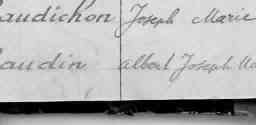 audichon Joseph Marie
audin albert Joseph